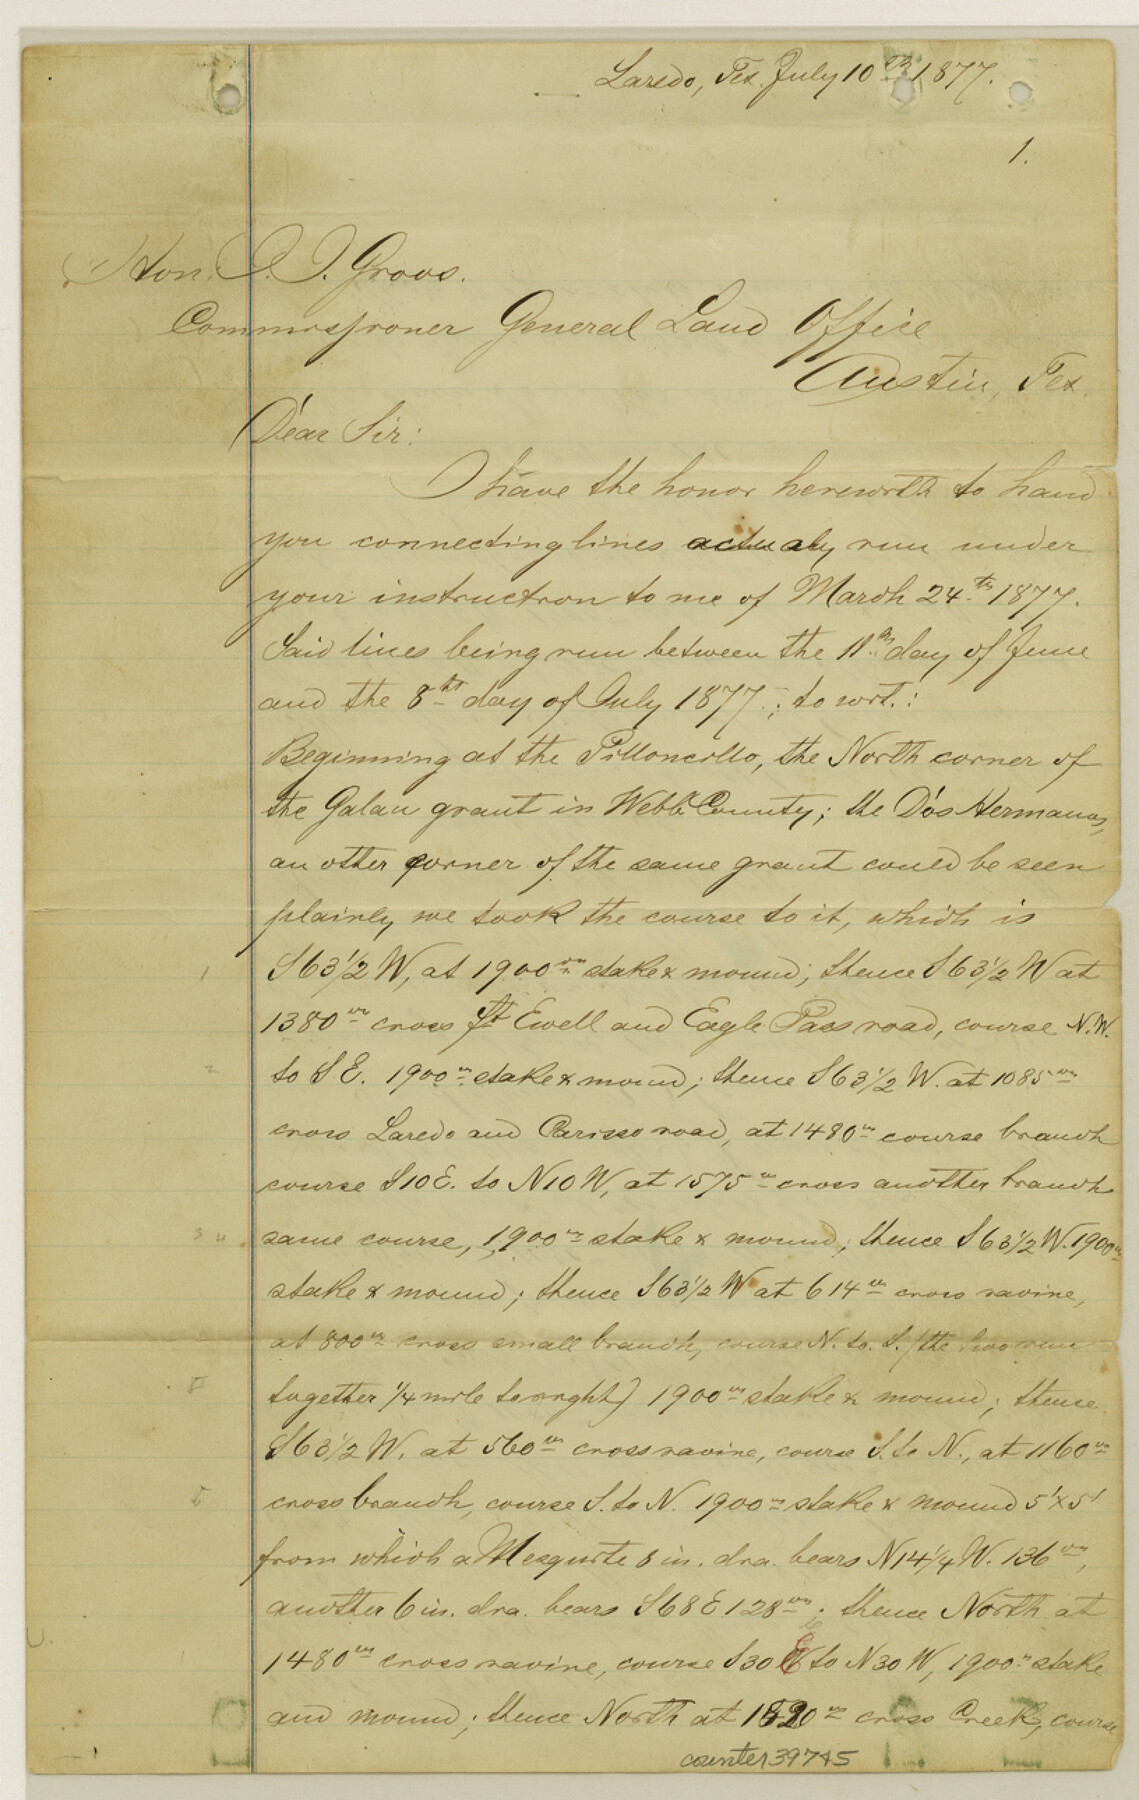 Laredo, Tex. July 10th 1877.
1.
Hon. J. J. Groos.
Commissioner General Land Office
Austin, Tex.
Dear Sir:
I have the honor herewith to hand
you connecting lines actualy run under
your instruction to me of March 24th 1877.
Said lines being run between the 11th day of June
and the 8th day of July 1877.; to wit.:
Beginning at the Pilloncillo, the North corner of
the Galan grant in Webb County; the Dos Hermanos,
an other corner of the same grant could be seen
plainly we took the course to it, which is
1 S63 1/2 W, at 1900 vrs stake & mound; thence S63 1/2 W at
1380 vrs cross Ft Ewell and Eagle Pass road, course N.W.
2 to S E. 1900 vrs stake & mound; thence S63 1/2 W. at 1085 vrs
cross Laredo and Carisso road, at 1480 vrs course branch
course S10E. to N10W, at 1575 vrs cross another branch
3 4 same course, 1900 vrs stake & mound; thence S63 1/2 W. 1900 vrs
stake & mound; thence S63 1/2 W at 614 vrs cross ravine,
at 800 vrs cross small branch, course N. to. S. (the two run
5 together 1/4 mile to right) 1900 vrs stake & mound; thence
S63 1/2 W. at 560 vrs cross ravine, course S. to N., at 1160 vrs
6 cross branch, course S. to N. 1900 vrs stake & mound 5'x5'
from which a Mesquite 8 in. dia. bears N14 1/4 W. 136 vrs,
another 6 in. dia. bears S68E 128 vrs; thence North at
1480 vrs cross ravine, course S30 E to N30W, 1900 vrs stake
and mound; thence North at 1820 vrs cross Creek, course
counter 39745